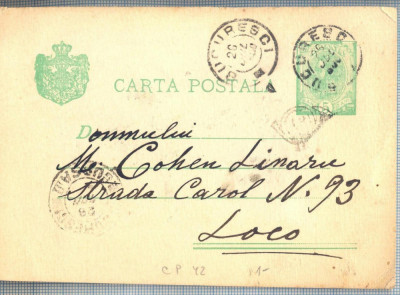 BUCURESCI
26
BUCURESCI
CARTA POSTALA
5
Domnului
Cohen Linaru
Strada Carol N. 93
Loco
C P 42